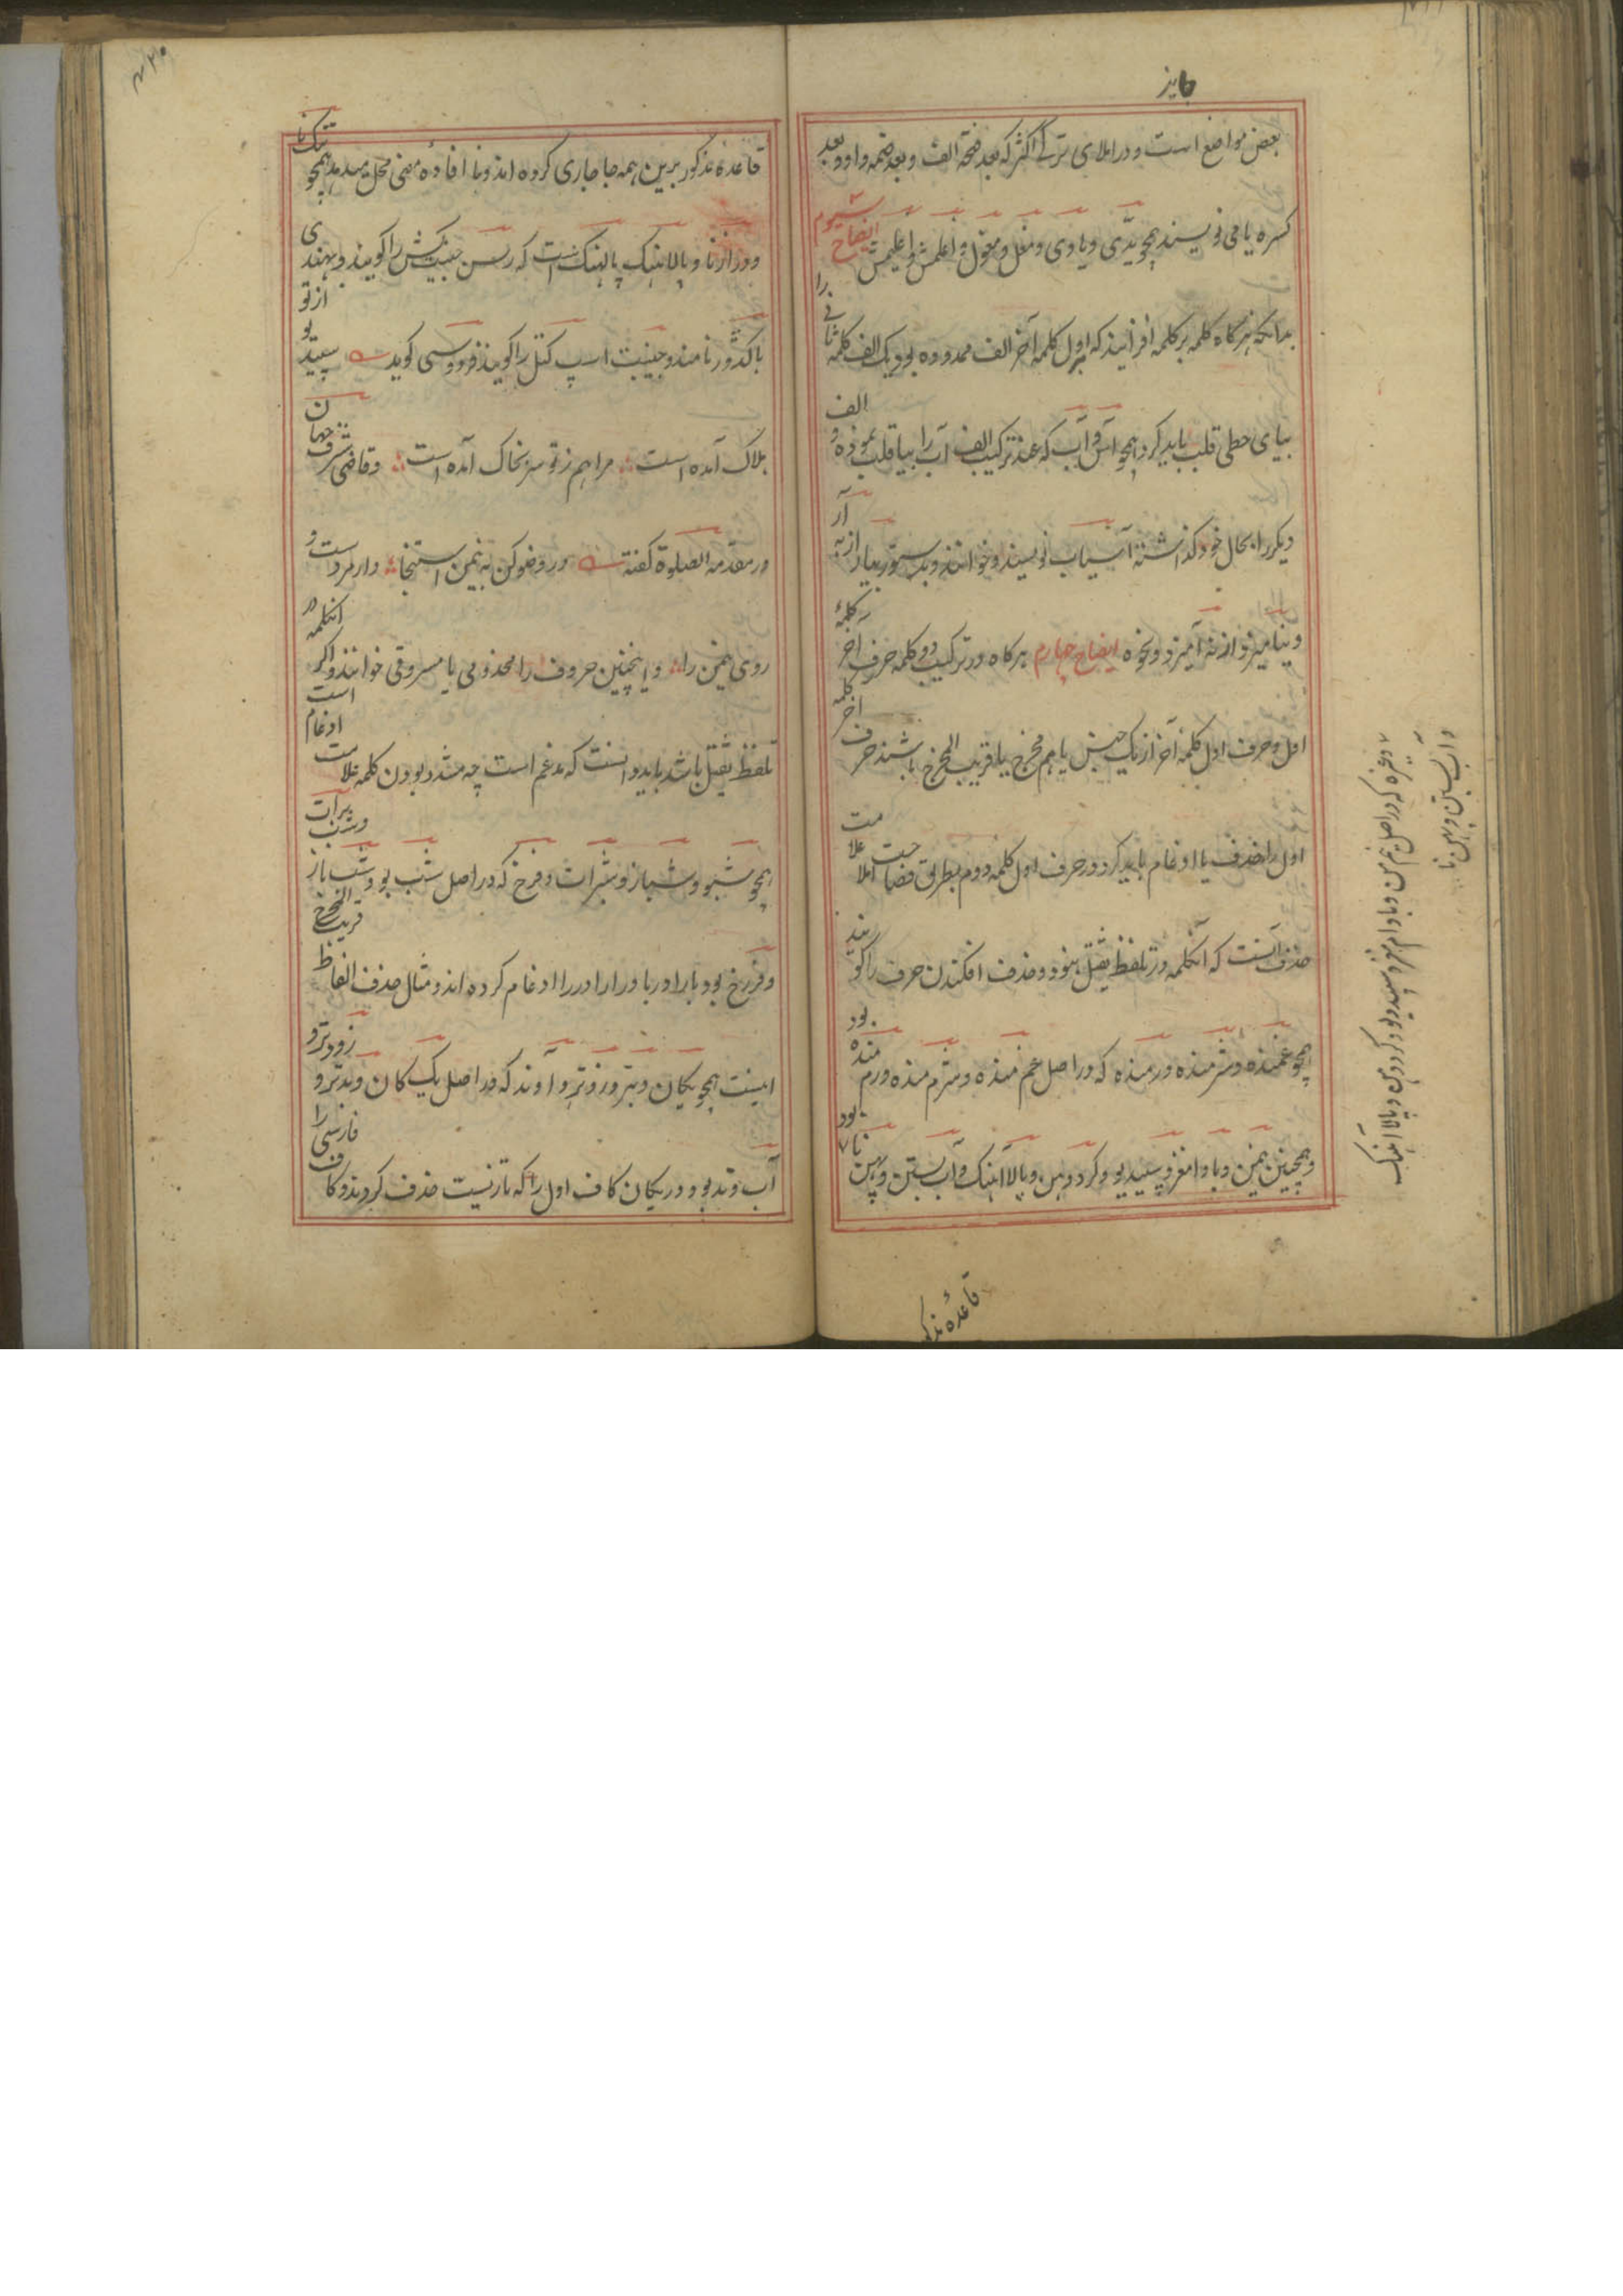 جایز
بعض مواضع است و در املای ترکی اکثر که بعد فتحه الف و بعد ضمه واو و بعد
کسره یا می نویسند همچو یدّی و یا وی و مغل و مغول و اغلمش و اغلیمش ایضاح سیوم
بدانکه هرکاه کلمه بر کلمه افزایند که اول کلمه آخر الف ممدوده بود یک الف کلمه ثانی را
بیای حطی قلب باید کرد همچو آس و آب که عند ترکیب الف آب را بیا قلب نموده و الف
دیکر را بحال خود کذاشته آسیاب نویسند و خوانند و بدستور بیار از به آر
و بیامیز از به آمیز و نحوه ایضاح چهارم هر کاه در ترکیب دو کلمه حرف آخر کلمهٔ
اول و حرف اول کلمه آخر از یک جنس یا هم مخرج یا قریب المخرج باشند حرف آخر کلمه
اول را حذف یا ادغام باید کرد در حرف اول کلمه دوم بطریق فصاحت املا علامت
حذف آنست که آنکلمه در تلفظ ثقیل نبود و حذف افکندن حرف را کویند
همچو غمنده و شرمنده و رمنده که در اصل غم منده و شرم منده و رم منده بود
و همچنین نیمن و بادامغز و سپیدیو و کردهن و پالاهنک و آبستن و پهن نا
وغیره که در اصل نیم من و بادام مغز و سپید دیو و کرد دهن و پالا آهنک
و آب بستن و پهن نا
قاعدهٔ مذکو
قاعدهٔ مذکور برین همه جا جاری کرده اند و نا افادهٔ معنی محل میدهد همچو تنک نا
و درازنا و پالاهنک پالهنک است که رسن جنیبت کش را کویند و بهندی
باکدور نامند و جنیبت اسپ کتل را کویند فردوسی کوید سپیدیو از تو
هلاک آمده است مرا هم ز تو سر بخاک آمده است و قاضی شرف جهان
در مقدمه الصلوة کفته در وضو کن به نیمن استنجا و ار مردست و
روی نیمن را و اینچنین حروف را محذوفی یا مسروقی خوانند و اکر آنکلمه در
تلفظ ثقیل باشد باید دانست که مدغم است چه مشدد بودن کلمه علامت ادغام است
همچو شبو و شباز و شبرات و فرخ که در اصل شب بو و شب باز و شب برات
و فر رخ بود با را در با و را را در را ادغام کرده اند و مثال حذف الفاظ قریب المخرج
اینست همچو یکان و بتر و زوتر و آوند که در اصل یک کان و بدتر و زودتر و
آب وند بود و در یکان کاف اول را که تازیست حذف کردند و کاف فارسی را